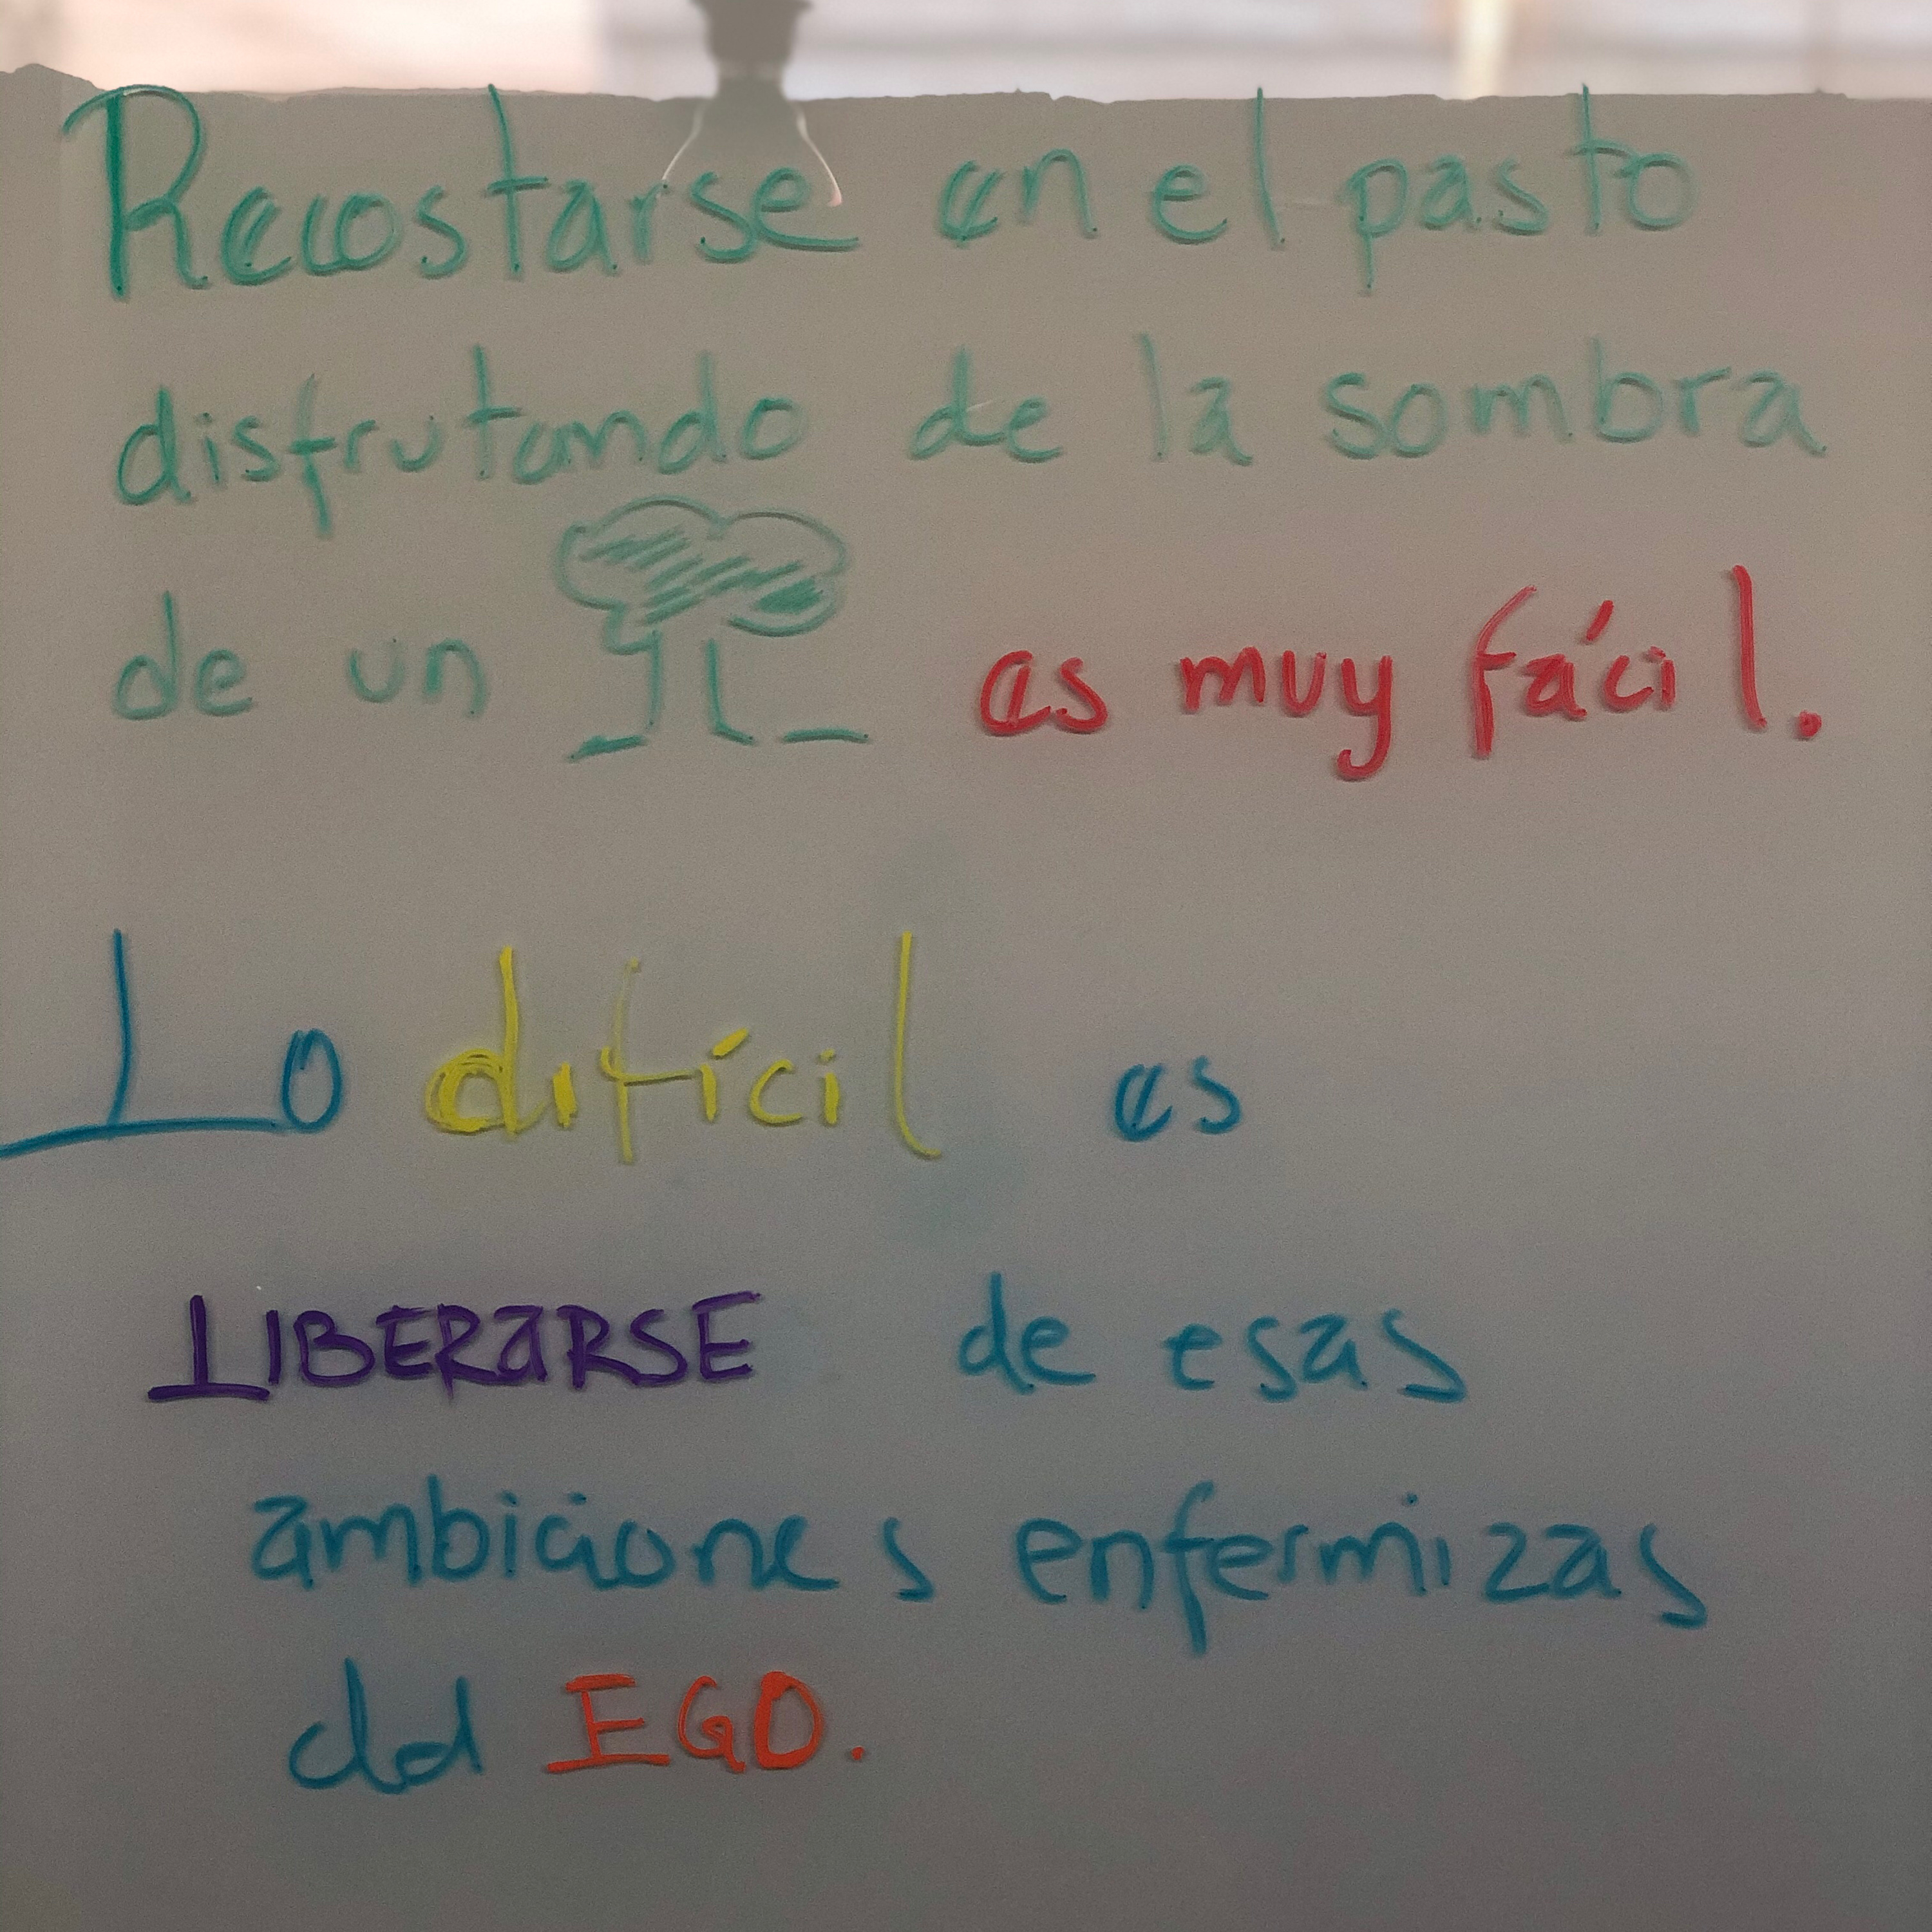 Recostarse en el pasto
disfrutando de la sombra
de un es muy fácil.
Lo difícil es
LIBERARSE de esas
ambiciones enfermizas
del EGO.